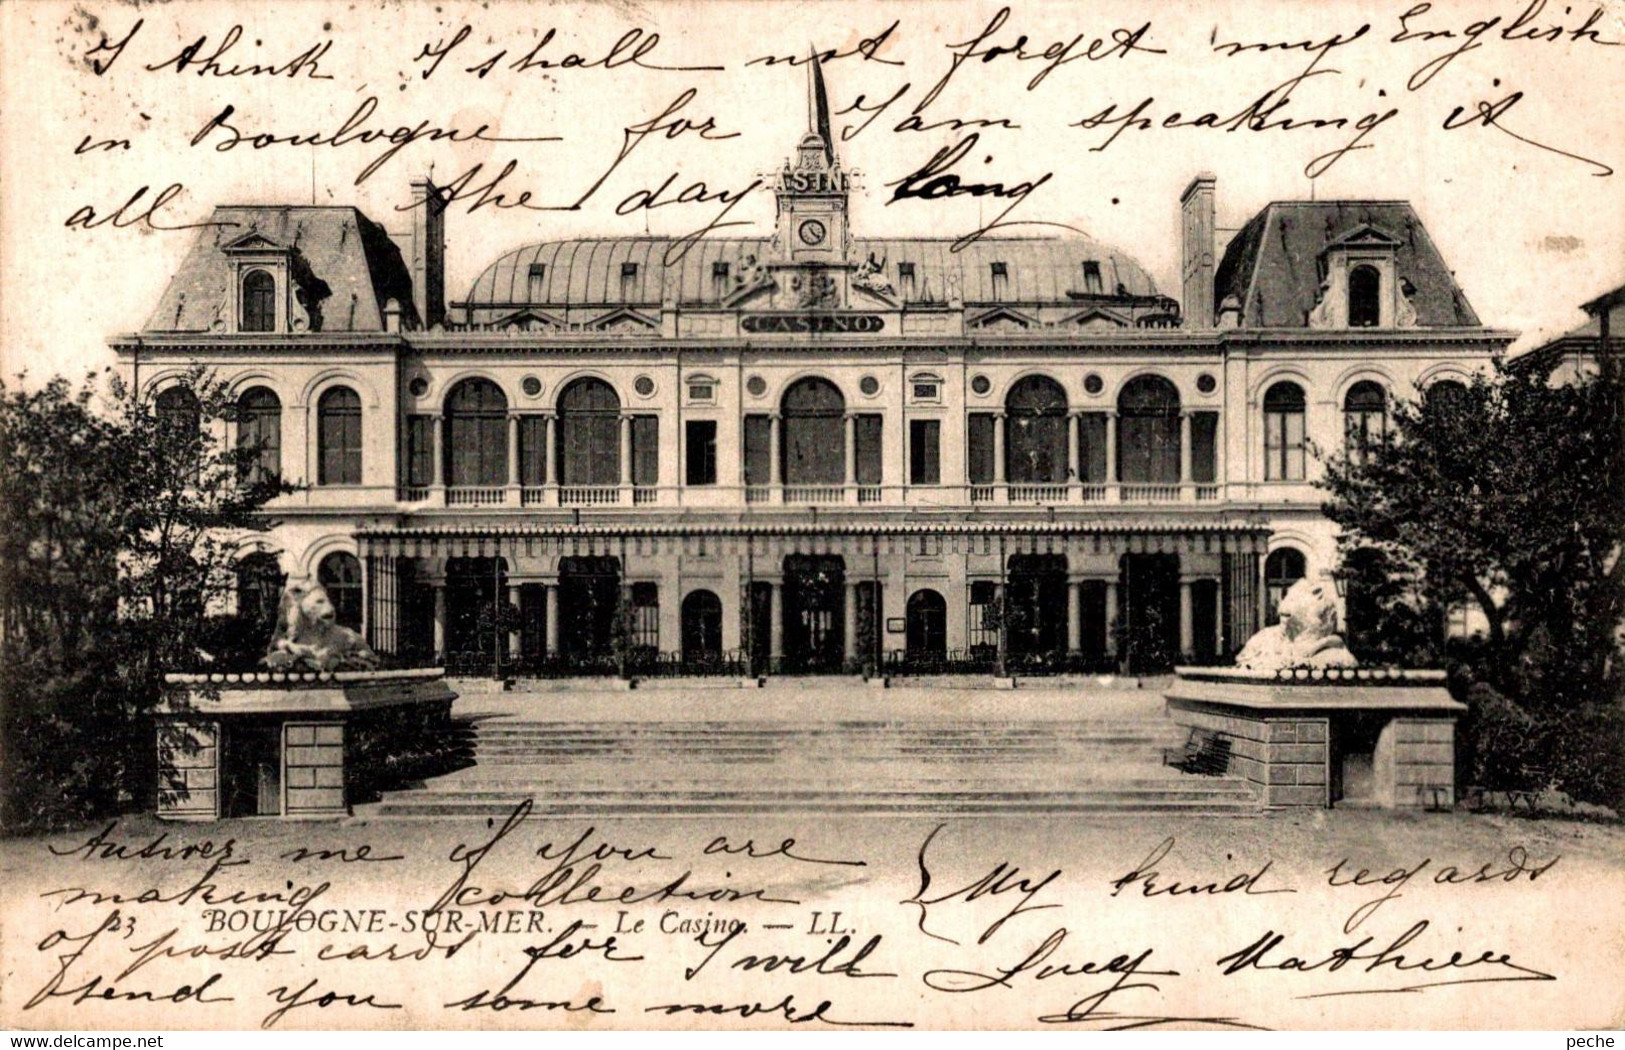 I think I shall not forget my English
in Boulogne for I am speaking it
all the day long.
CASINO
CASINO
Answer me if you are
making collection
of post cards for I will
send you some more
My kind regards
Lucy Mathieu
23 BOULOGNE-SUR-MER. — Le Casino. — LL.
www.delcampe.net
peche